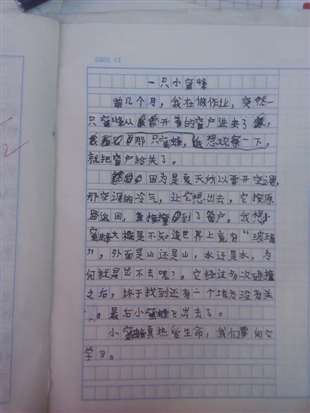 一只小蜜蜂
前几个月，我在做作业，突然一
只蜜蜂从开着的窗户进来了
那只蜜蜂，我想观察一下，
就把窗户给关了。
因为是夏天所以要开空调，
那空调的冷气，让它想出去，它按原
路返回，直接到了窗户。我想
蜜蜂大概是不知道世界上竟有“玻璃
”，外面是山还是山，水还是水，为
何就是出不去呢？，它经过多次碰撞
之后，终于找到还有一个地方没有关
。最后小蜜蜂飞出去了。
小蜜蜂真热爱生命，我们要向它
学习。